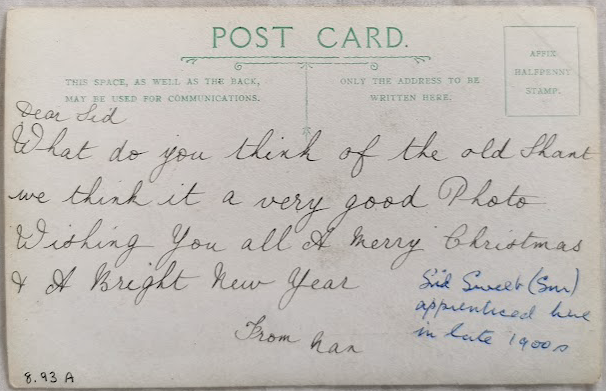 POST CARD.
THIS SPACE, AS WELL AS THE BACK,
MAY BE USED FOR COMMUNICATIONS.
ONLY THE ADDRESS TO BE
WRITTEN HERE.
AFFIX
HALFPENNY
STAMP.
Dear Sid
What do you think of the old Shant
we think it a very good Photo
Wishing You all A Merry Christmas
& A Bright New Year
From Nan
Sid Sweet (Snr)
apprenticed here
in late 1900s
8.93 A